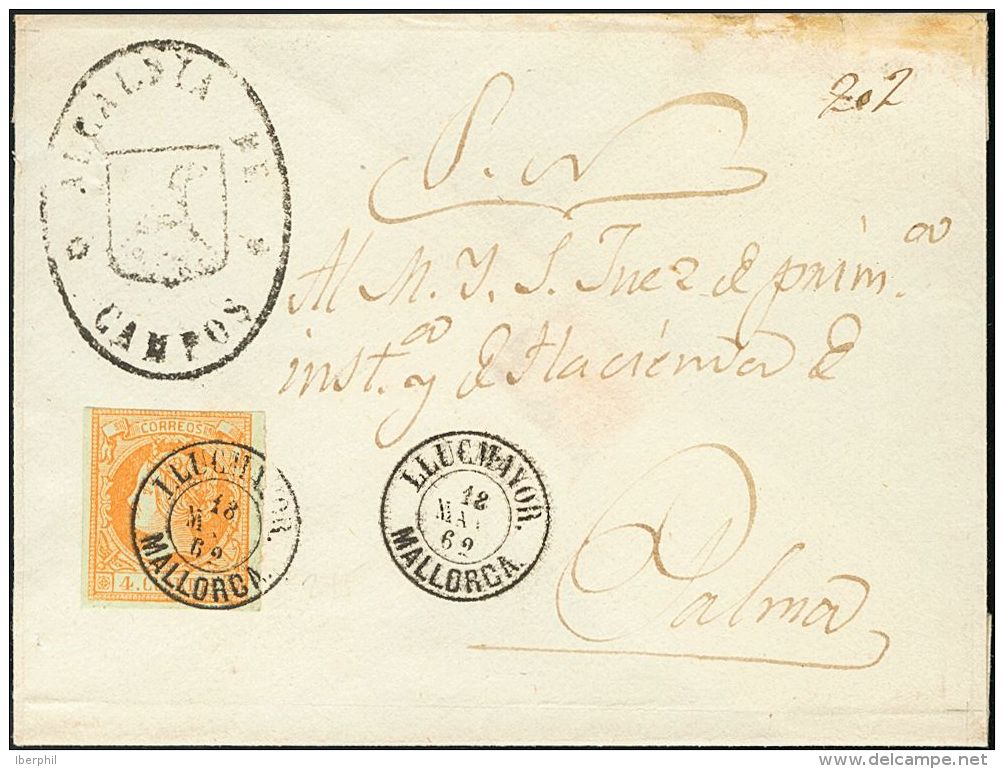 ALCALDIA DE
CAMPOS
202
S. N
Al M. Y. S. Juez de prim.ª
inst.ª y de Hacienda de
Palma
CORREOS
4.
LLUCMAYOR.
18
62
MALLORCA.
LLUCMAYOR.
18
MA
62
MALLORCA.
Iberphil
delcampe.net